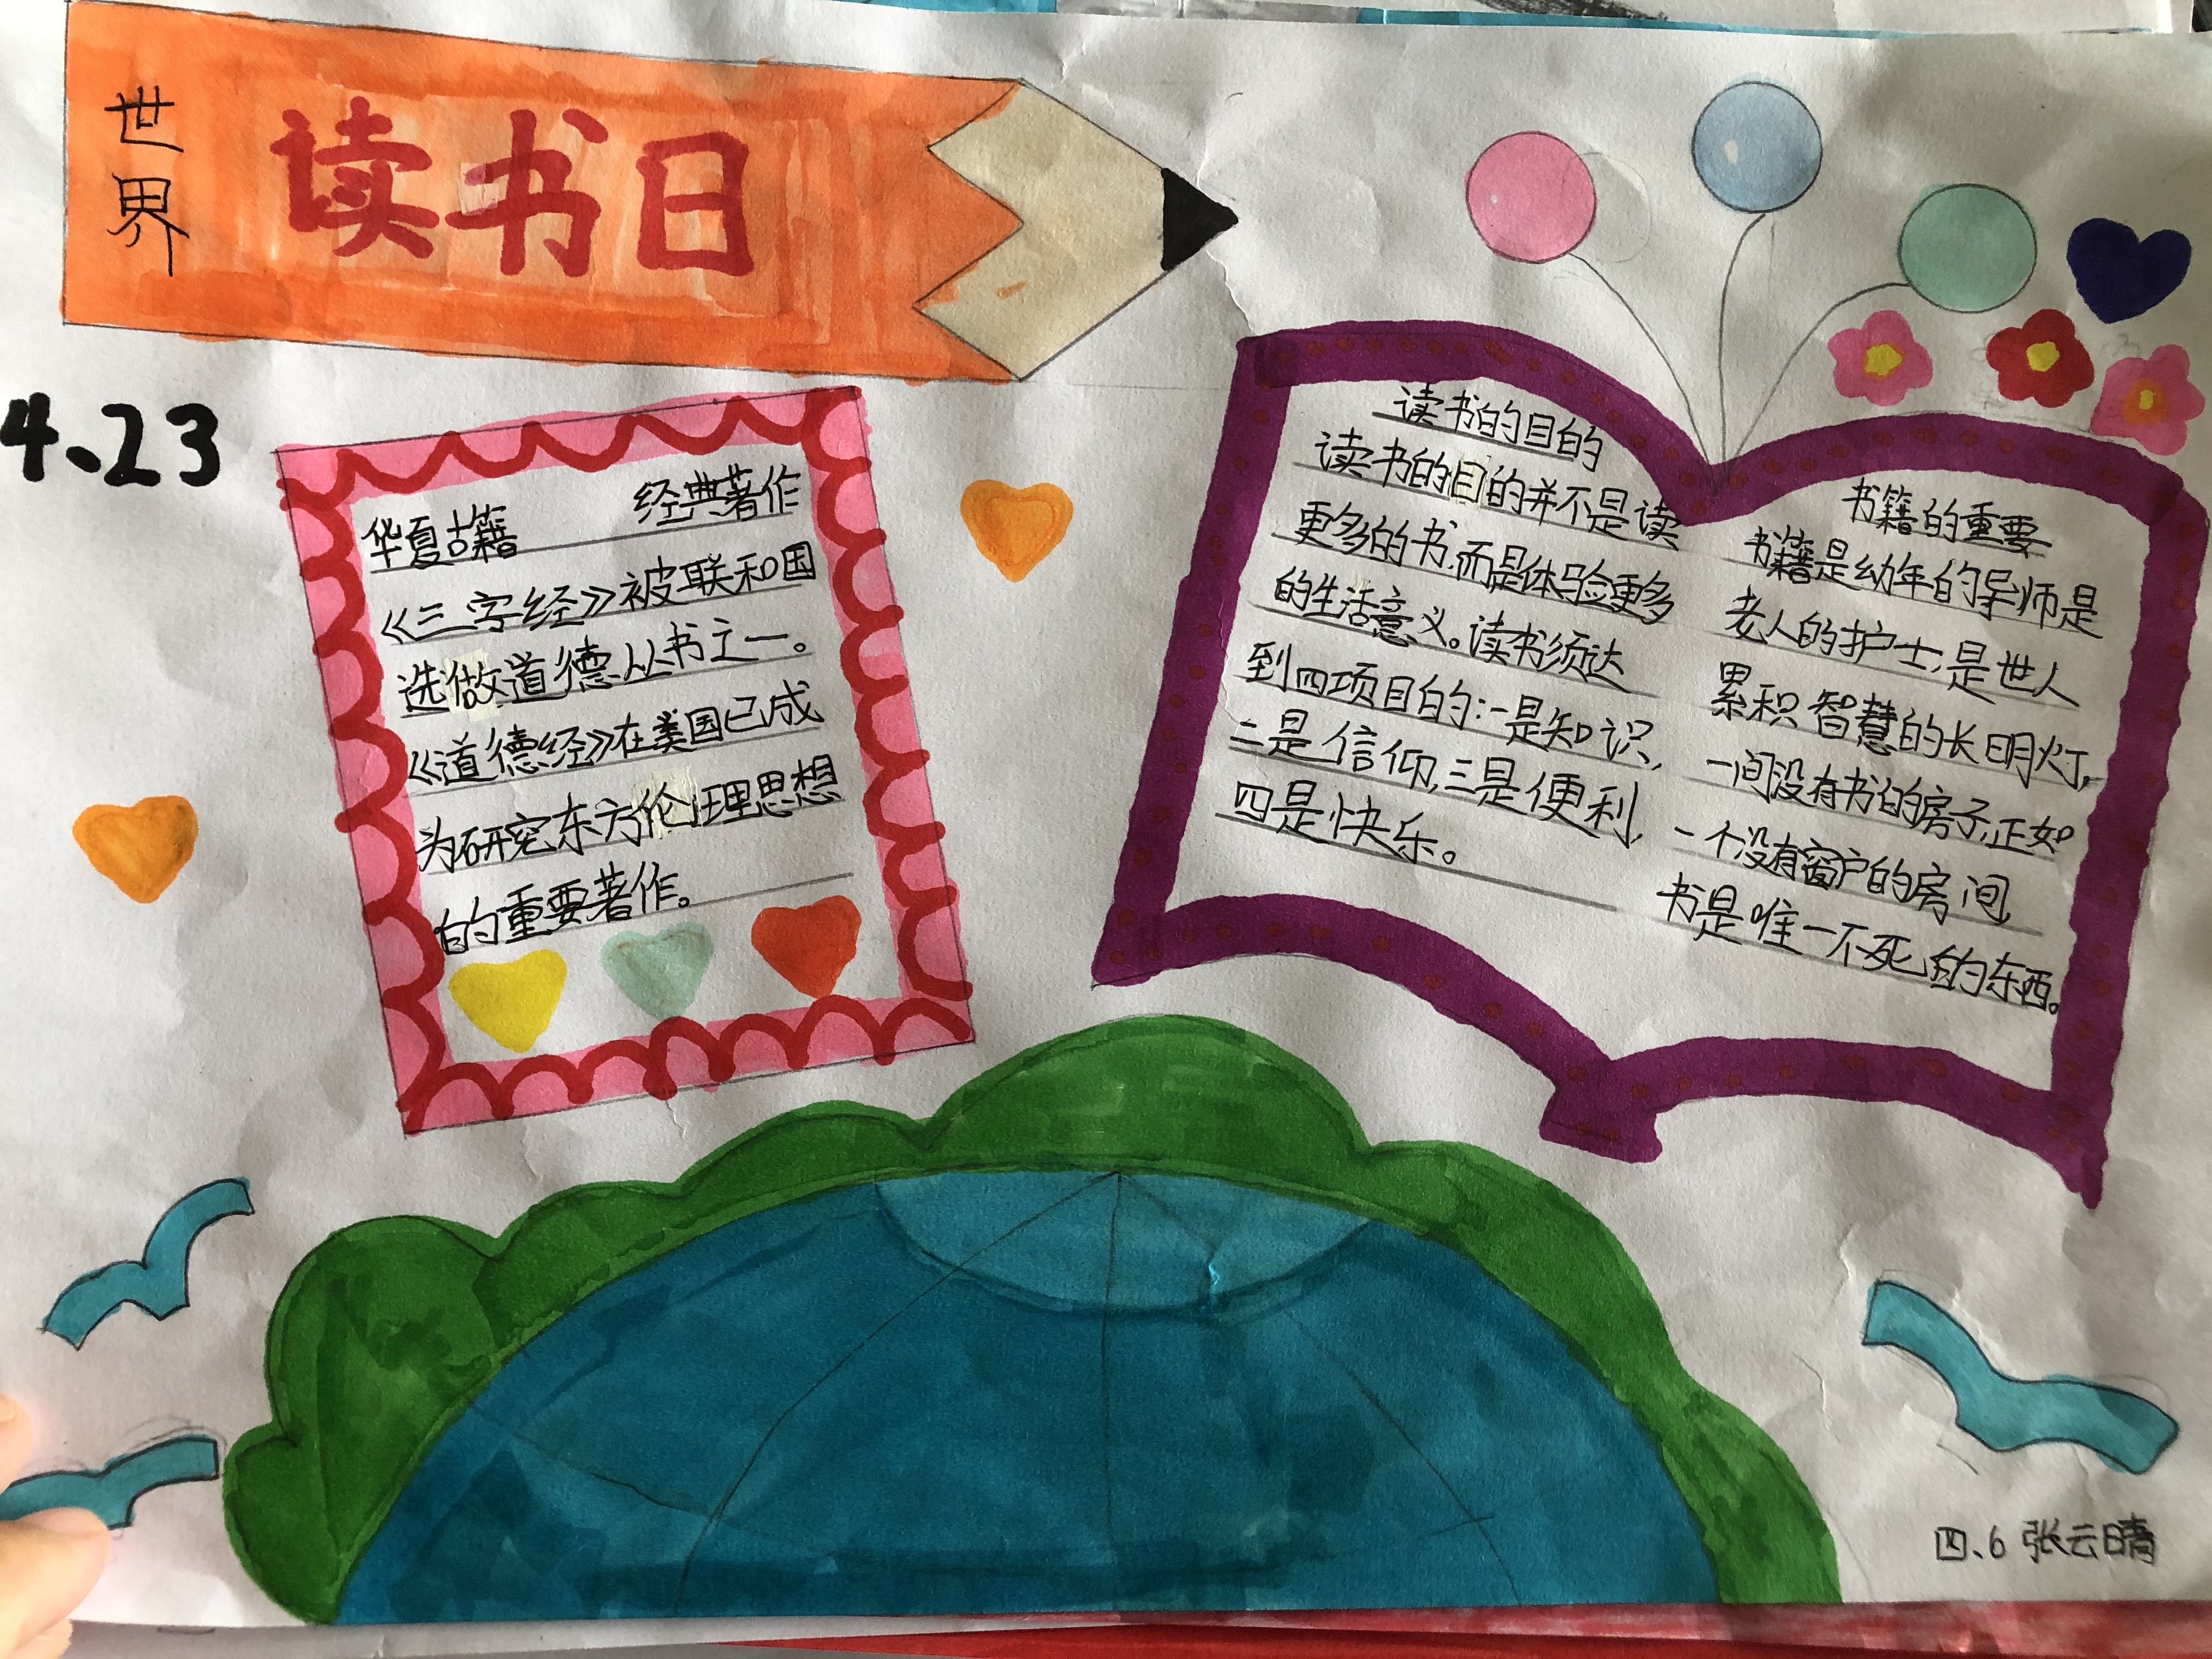 世界
读书日
4.23
华夏古籍 经典著作
《三字经》被联和国
选做道德丛书之一。
《道德经》在美国已成
为研究东方伦理思想
的重要著作。
读书的目的
读书的目的并不是读
更多的书,而是体验更多
的生活意义。读书须达
到四项目的:一是知识,
二是信仰,三是便利,
四是快乐。
书籍的重要
书籍是幼年的导师是
老人的护士,是世人
累积智慧的长明灯,
一间没有书的房子,正如
一个没有窗户的房间,
书是唯一不死的东西。
四、6 张云晴